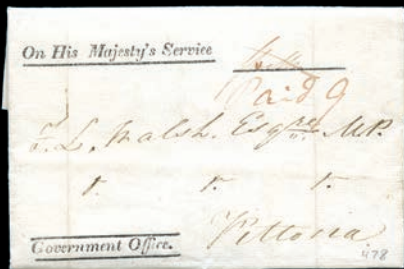 On His Majesty's Service
Paid 9
L. Walsh. Esqre M.P.
Vittoria
Government Office.
478